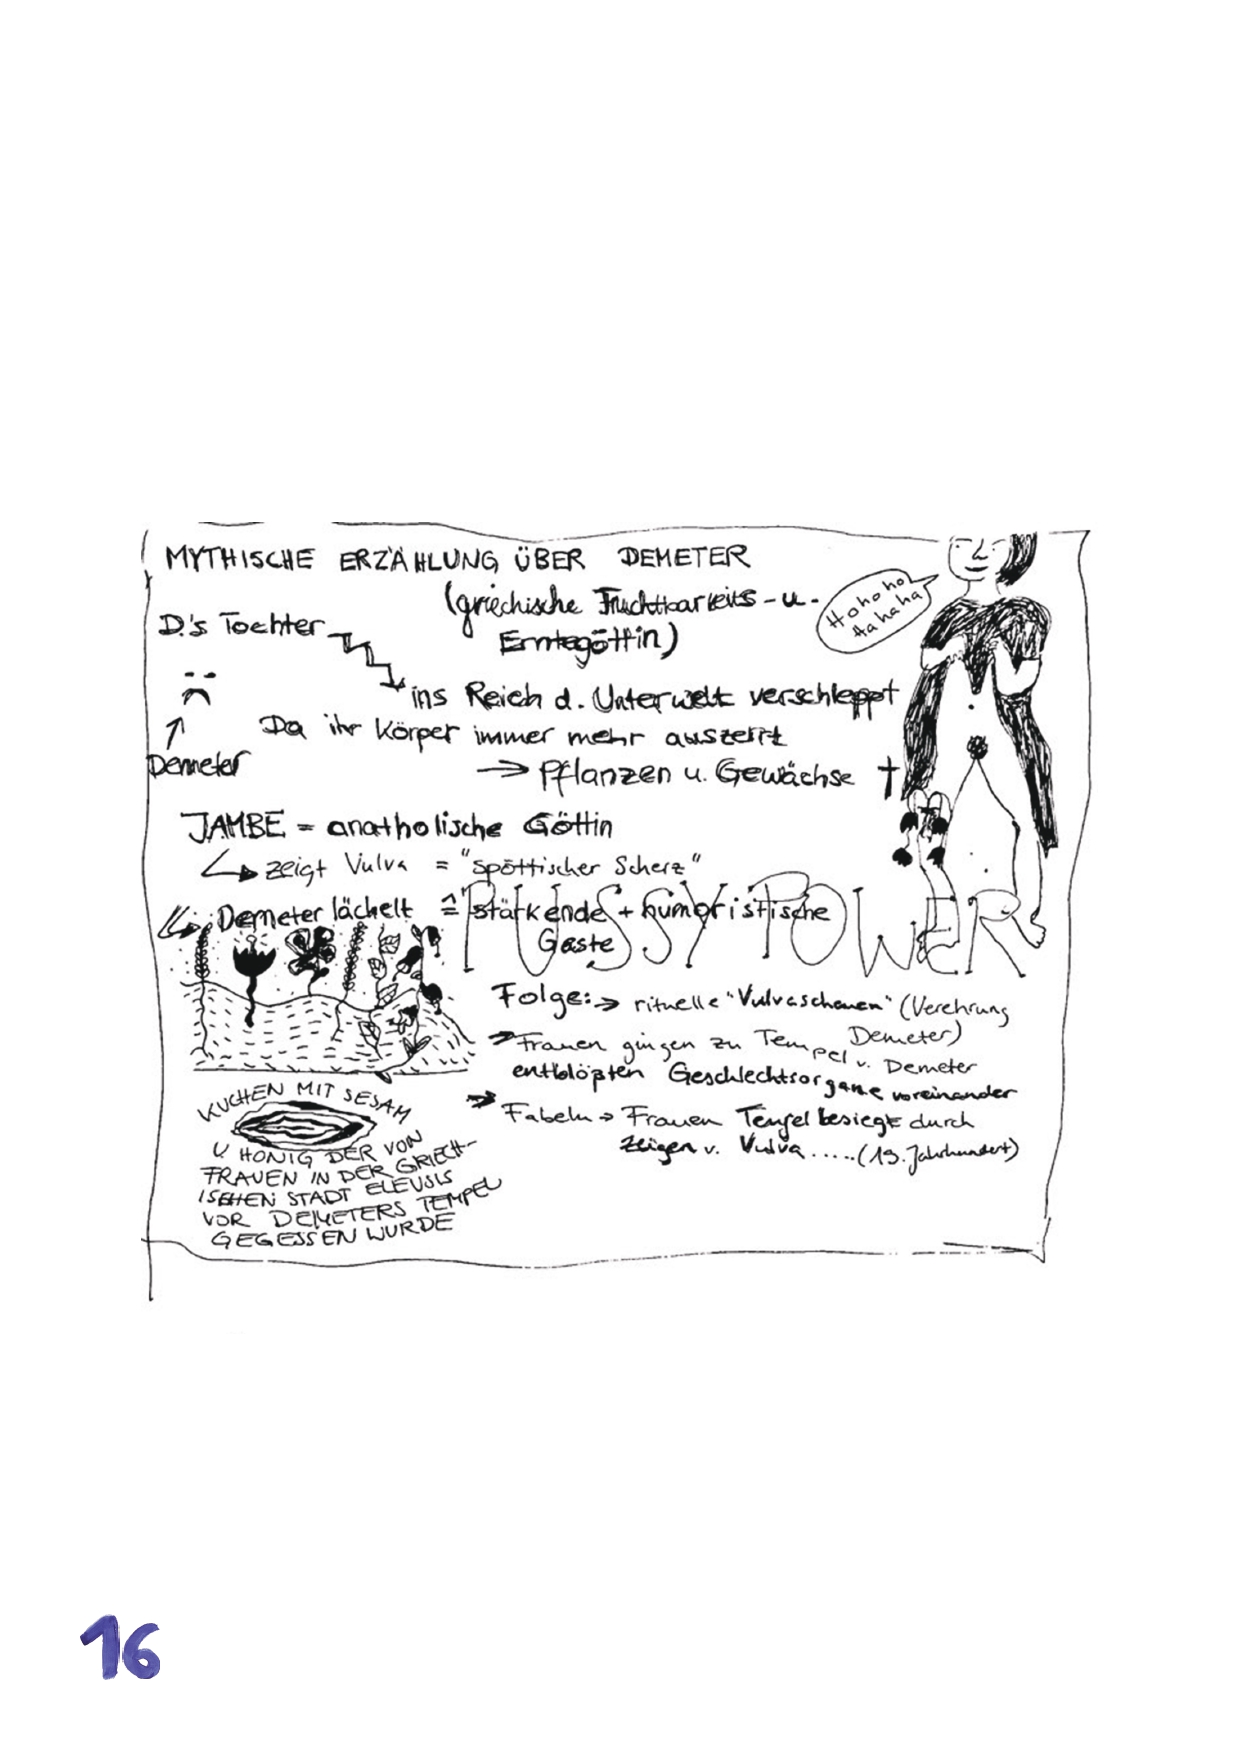 MYTHISCHE ERZÄHLUNG ÜBER DEMETER
(griechische Fruchtbarkeits - u.
Erntegöttin)
Hohoho
Hahaha
D.'s Tochter
ins Reich d. Unterwelt verschleppt
Demeter
Da ihr Körper immer mehr auszerrt
→ Pflanzen u. Gewächse †
JAMBE = anatholische Göttin
↳ zeigt Vulva = "spöttischer Scherz"
Demeter lächelt ≙ stärkende + humoristische
Geste
PUSSY POWER
Folge: → rituelle "Vulvaschauen" (Verehrung
Demeter)
→ Frauen gingen zu Tempel v. Demeter
entblößten Geschlechtsorgane voreinander
→ Fabeln → Frauen Teufel besiegt durch
zeigen v. Vulva ..... (19. Jahrhundert)
KUCHEN MIT SESAM
U HONIG DER VON
FRAUEN IN DER GRIECH-
ISCHEN STADT ELEUSIS
VOR DEMETERS TEMPEL
GEGESSEN WURDE
16